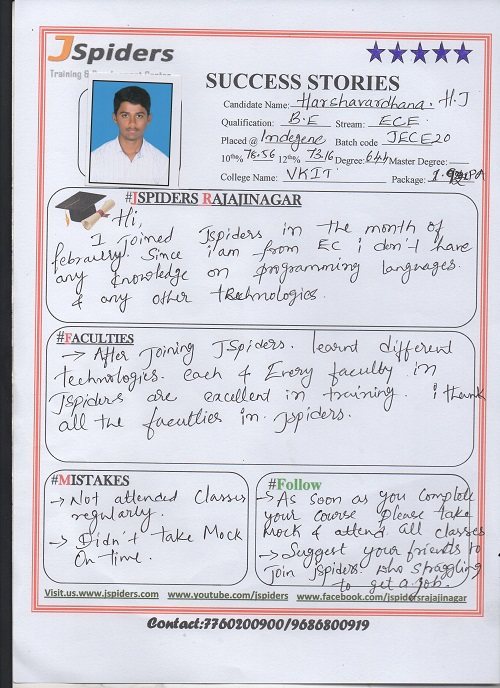 JSpiders
Training & Development Center
SUCCESS STORIES
Candidate Name: Harshavardhana. H.J
Qualification: B.E Stream: ECE
Placed @ Indegene Batch code JECE20
10th% 78.56 12th% 73.16 Degree: 64.4 Master Degree:
College Name: VKIT Package:
#JSPIDERS RAJAJINAGAR
Hi,
I Joined Jspiders in the month of
febrauery. Since i'am from EC i don't have
any knowledge on programming languages.
& any other technologies.
#FACULTIES
→ After Joining JSpiders. learnt different
technologies. each & Every faculty in
Jspiders are excellent in training. i thank
all the facultlies in Jspiders.
#MISTAKES
→ Not attended Classes
regularly.
→ Didn't take Mock
On time.
#Follow
→ As soon as you complete
your course please take
Mock & attend all classes
→ Suggest your friends to
Join Jspiders. who straggling
to get a job.
Visit.us.www.jspiders.com www.youtube.com/jspiders www.facebook.com/jspidersrajajinagar
Contact:7760200900/9686800919